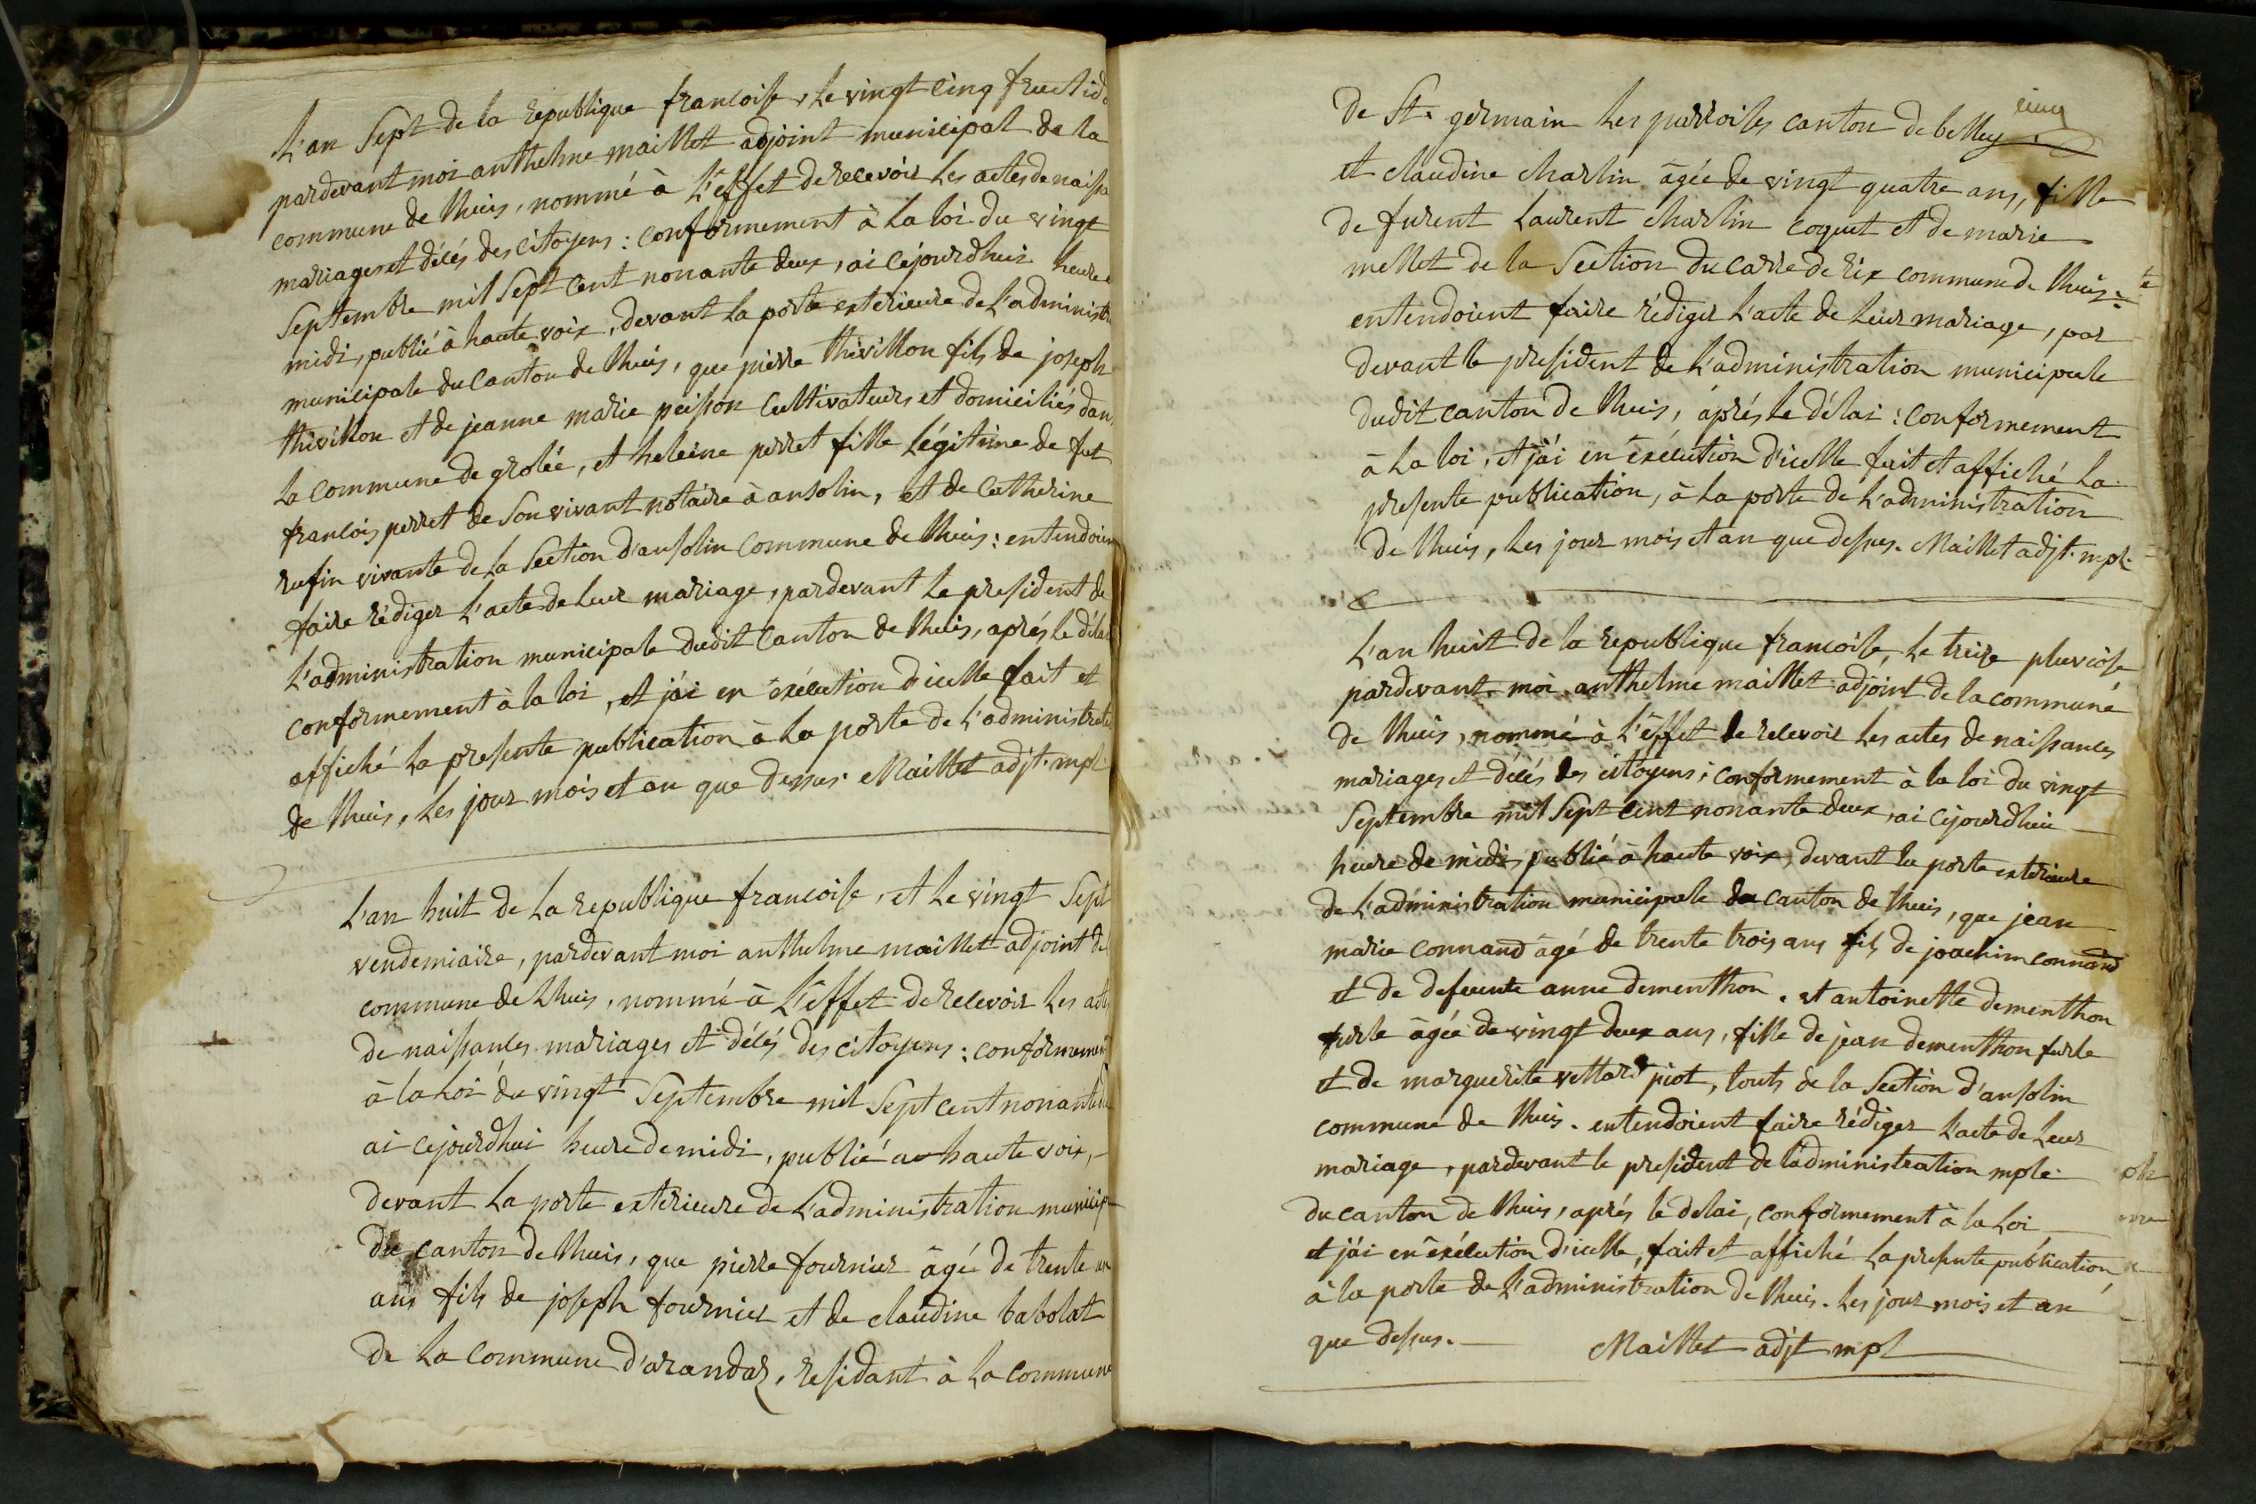 L'an Sept de la republique francoise, le vingt cinq fructid
pardevant moi anthelme maillet adjoint municipal de la
commune de lhuis, nommé à L'effet de recevoir les actes de naissa
mariages et décés des citoyens : conformement à la loi du vingt
Septembre mil Sept cent nonante deux, ai cejourdhui heure
midi, publié à haute voix, devant la porte exterieure de L'administr
municipale du canton de lhuis, que pierre thivillon fils de joseph
thivillon et de jeanne marie peisson cultivateurs et domiciliés dans
la commune de grolée, et heleine perret fille légitime de fut
francois perret de Son vivant notaire à ansolin, et de Catherine
rufin vivante de la Section d'ansolin commune de lhuis : entendoien
faire rédiger L'acte de leur mariage, pardevant le president de
L'administration municipale dudit canton de lhuis, aprés le délai
conformement à la loi, et j'ai en éxécution d'icelle fait et
affiché la presente publication à la porte de L'administrat
de lhuis, les jour mois et an que dessus. Maillet adjt. mpl.
L'an huit de la republique francoise, et le vingt Sept
vendemiaire, pardevant moi anthelme maillet adjoint de
commune de lhuis, nommé à L'effet de recevoir les act
de naissances mariages et décés des citoyens : conformement
à la loi du vingt Septembre mil Sept cent nonante
ai cejourdhui heure de midi, publié a haute voix,
devant la porte exterieure de L'administration municip
du canton de lhuis, que pierre fournier âgé de trente
ans fils de joseph fournier et de claudine babolat
de la commune d'arandas, residant à la commune
cinq
de St. germain les parroisses canton de belley
et claudine charlin âgée de vingt quatre ans, fille
de furent Laurent charlin coquet et de marie
mellet de la Section du carre de rix commune de lhuis :
entendoient faire rédiger L'acte de leur mariage, par
devant le president de L'administration municipale
dudit canton de lhuis, aprés le délai : conformement
à la loi, et j'ai en éxécution d'icelle fait et affiché la
presente publication, à la porte de L'administration
de lhuis, les jour mois et an que dessus. Maillet adjt. mpl.
L'an huit de la republique francoise, le treize pluviôse
pardevant moi anthelme maillet adjoint de la commune
de lhuis, nommé à L'effet de recevoir les actes de naissances
mariages et décés des citoyens ; conformement à la loi du vingt
Septembre mil Sept cent nonante deux, ai cejourdhui
heure de midi, publié à haute voix, devant la porte exterieure
de L'administration municipale du canton de lhuis, que jean
marie connand âgé de trente trois ans fils de joachim connand
et de defunte anne dementhon. et antoinette dementhon
furle âgée de vingt deux ans, fille de jean dementhon furle
et de marguerite vettard piot, touts de la Section d'ansolin
commune de lhuis. entendoient faire rédiger L'acte de leur
mariage, pardevant le president de L'administration mple.
du canton de lhuis, aprés le delai, conformement à la loi
et j'ai en éxécution d'icelle, fait et affiché la presente publication
à la porte de L'administration de lhuis. les jour mois et an
que dessus. Maillet adjt mpl